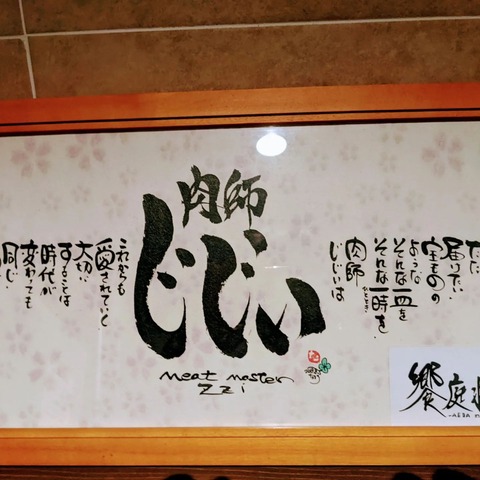 ただ
届けたい
宝ものの
ような
そんな一皿を
そんな一時を
ひととき
肉師
じじいは
肉師
じじい
meat master
zzi
これからも
愛されていく
大切に
することは
時代が
変わっても
同じ
饗庭